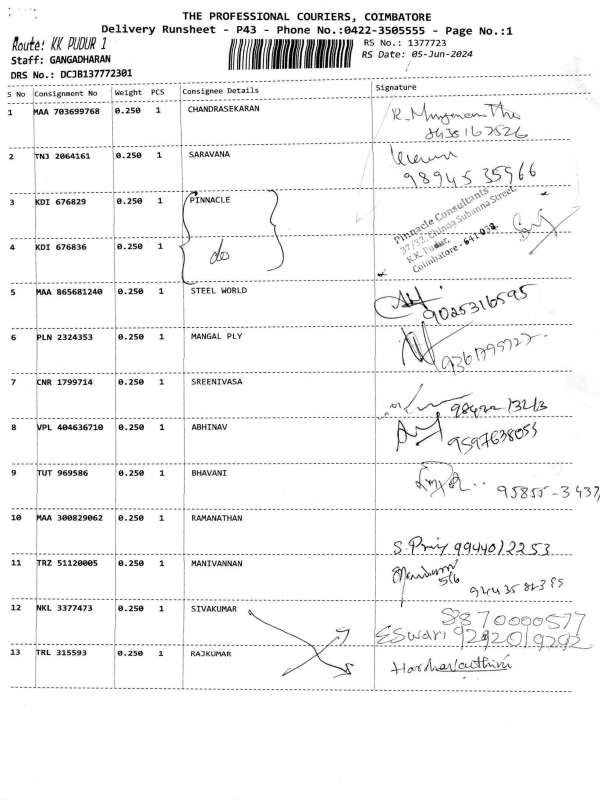 THE PROFESSIONAL COURIERS, COIMBATORE
Delivery Runsheet - P43 - Phone No.:0422-3505555 - Page No.:1
Route: KK PUDUR 1
RS No.: 1377723
Staff: GANGADHARAN
RS Date: 05-Jun-2024
DRS No.: DCJB137772301
S No Consignment No Weight PCS Consignee Details Signature
1 MAA 703699768 0.250 1 CHANDRASEKARAN
2 TNJ 2064161 0.250 1 SARAVANA
9894535966
3 KDI 676829 0.250 1 PINNACLE
Pinnacle Consultants
37/32, Chinna Subanna Street,
K.K. Pudur,
Coimbatore - 641 038.
4 KDI 676836 0.250 1 do
5 MAA 865681240 0.250 1 STEEL WORLD
9025316595
6 PLN 2324353 0.250 1 MANGAL PLY
7 CNR 1799714 0.250 1 SREENIVASA
8 VPL 404636710 0.250 1 ABHINAV
9597638055
9 TUT 969586 0.250 1 BHAVANI
95855-3437
10 MAA 300829062 0.250 1 RAMANATHAN
S. Priy 9944012253
11 TRZ 51120005 0.250 1 MANIVANNAN
12 NKL 3377473 0.250 1 SIVAKUMAR
ESwari
13 TRL 315593 0.250 1 RAJKUMAR